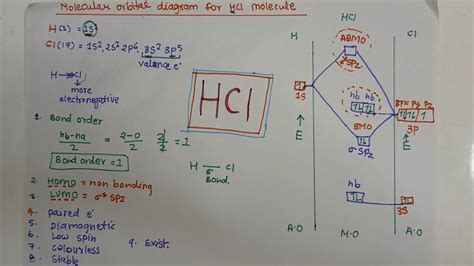 Molecular orbital diagram for HCl molecule
H(1) = 1S¹
Cl(17) = 1S², 2S² 2P⁶, 3S² 3P⁵
valance e⁻
H → Cl
more
electronegative
HCl
1. Bond order
Nb-Na / 2 = 2-0 / 2 = 2/2 = 1
Bond order = 1
H — Cl
σ
Bond.
2. HOMO = non bonding
3. LUMO = σ* SPz
4. paired e⁻
5. Diamagnetic
6. Low spin
7. Colourless
8. Stable
9. Exist.
H
HCl
Cl
ABMO
σ* SPz
1S
nb
Px Py Pz
3P
BMO
σ SPz
E
E
nb
3S
A.O
M.O
A.O